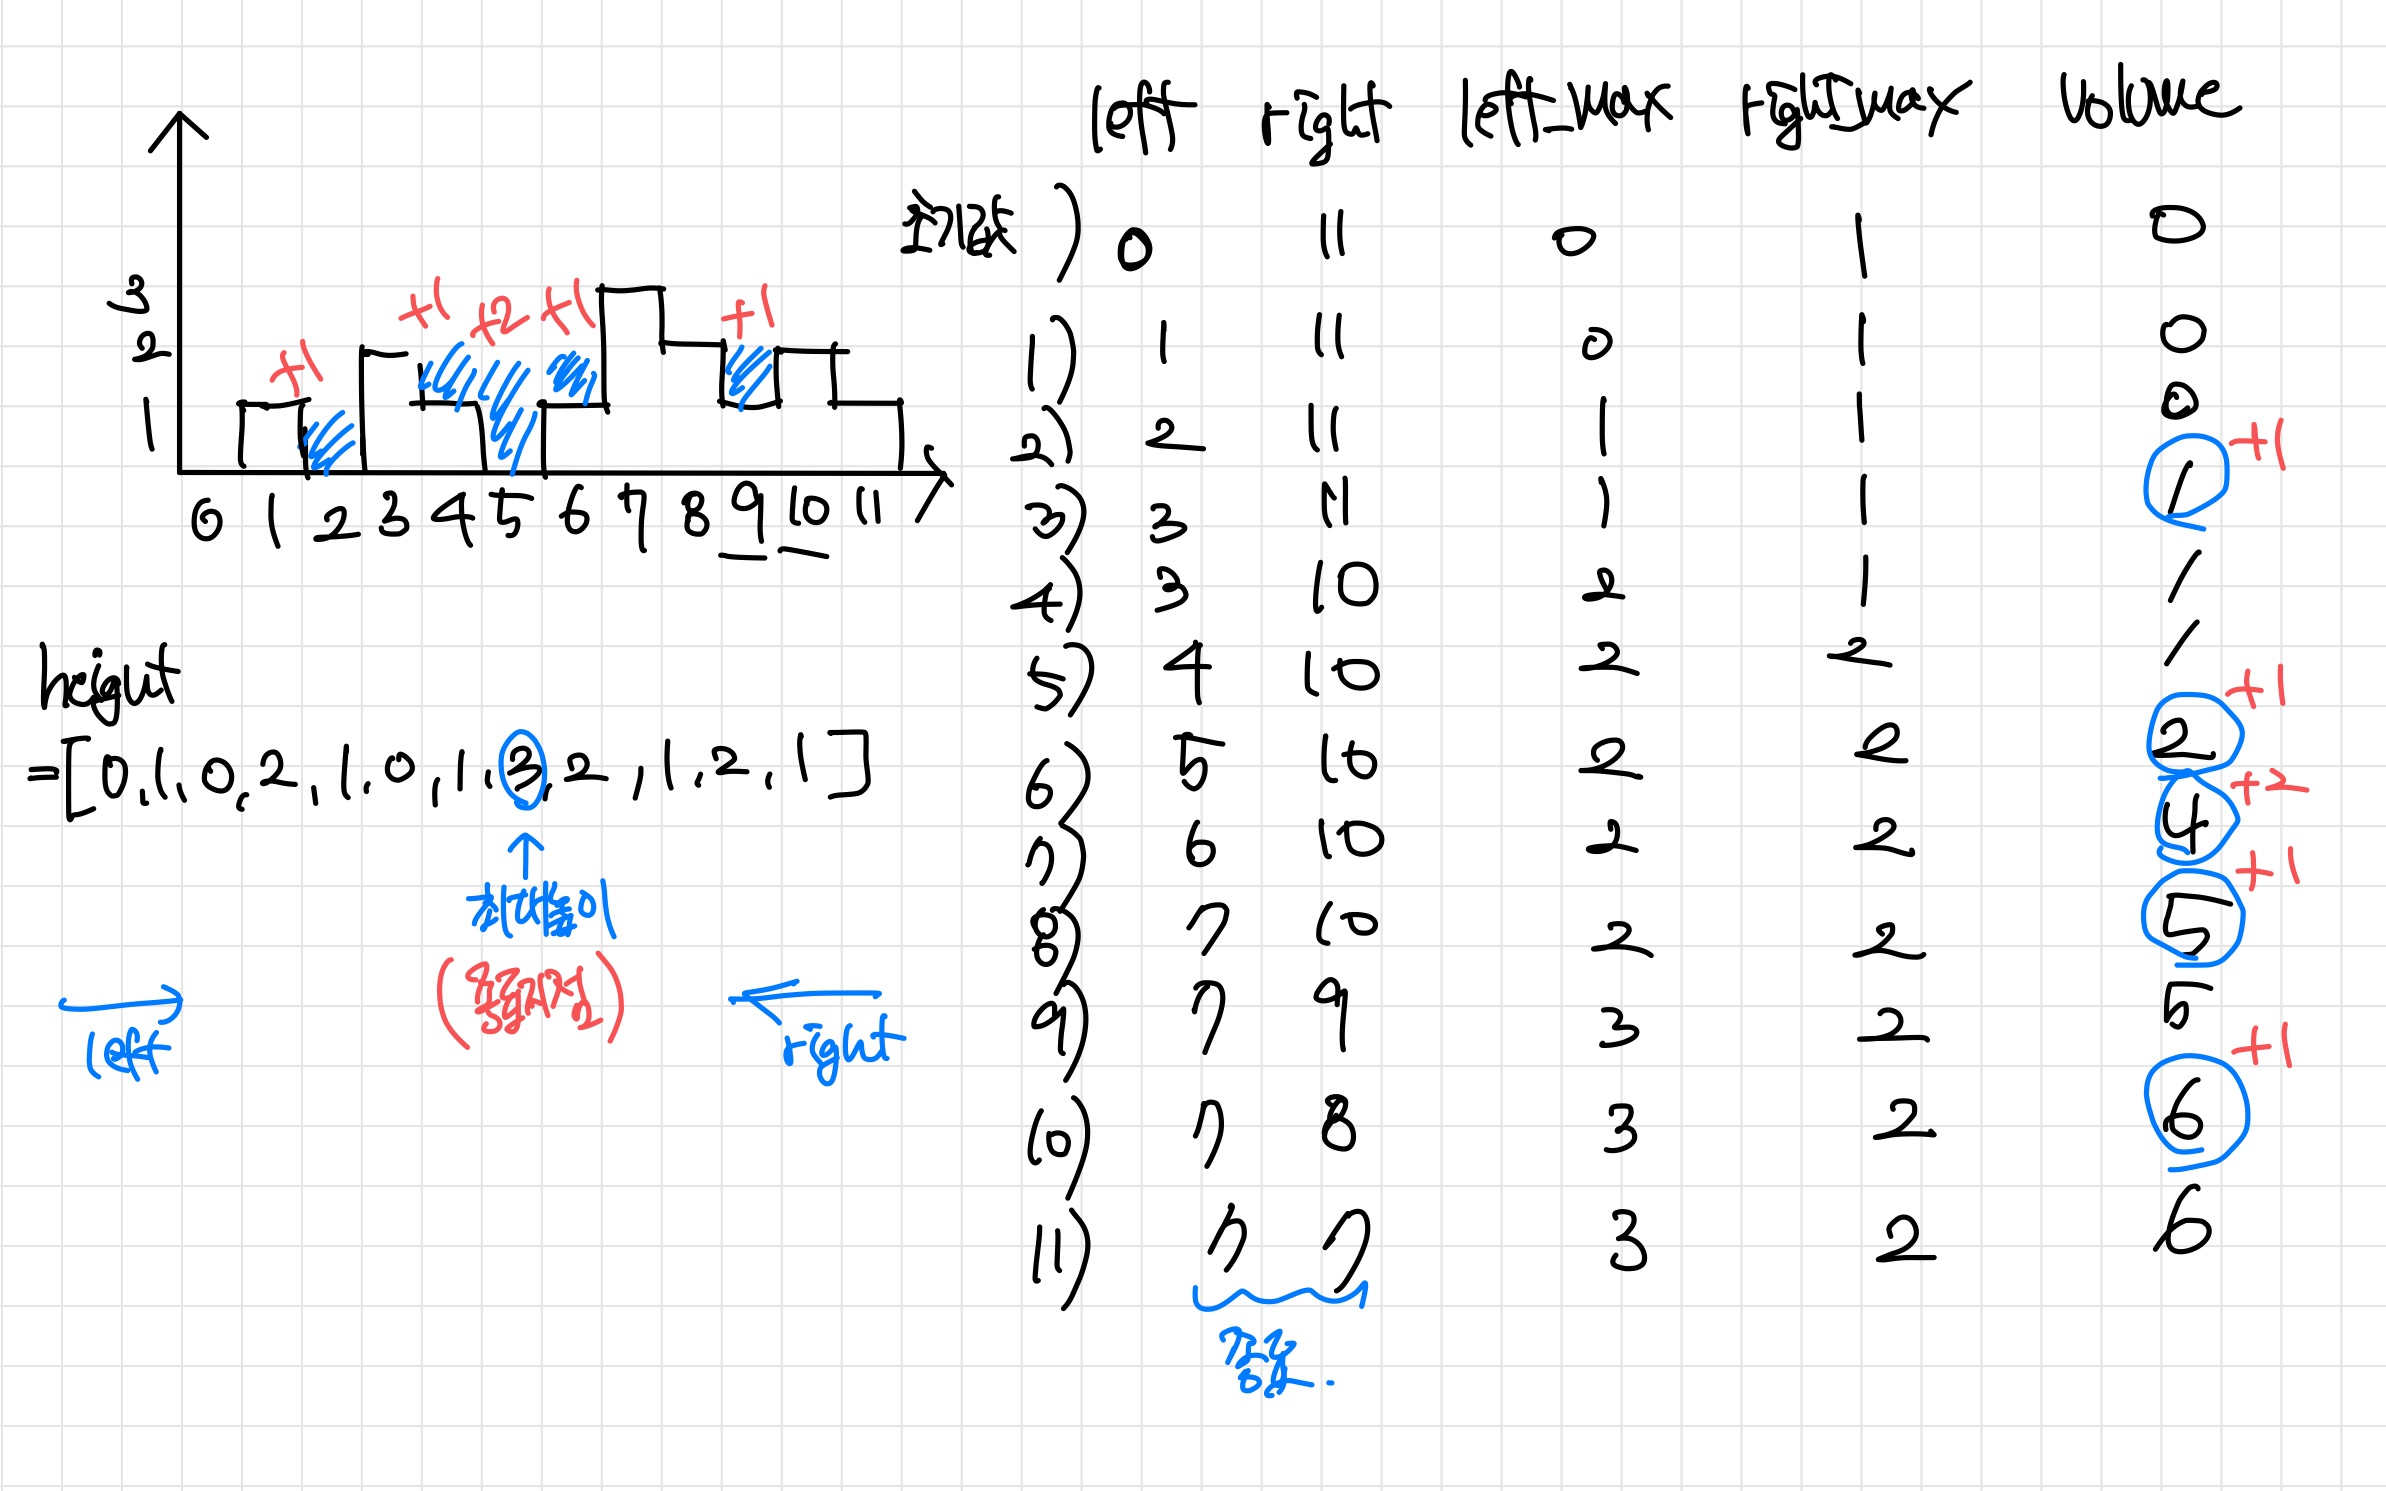 3
2
1
+1
+1
+2
+1
+1
0 1 2 3 4 5 6 7 8 9 10 11
height
=[0,1,0,2,1,0,1,3,2,1,2,1]
최대높이
left
right
left right left_max right_max volume
초기값) 0 11 0 1 0
1) 1 11 0 1 0
2) 2 11 1 1 0
3) 3 11 1 1 1 +1
4) 3 10 2 1 1
5) 4 10 2 2 1
6) 5 10 2 2 2 +1
7) 6 10 2 2 4 +2
8) 7 10 2 2 5 +1
9) 7 9 3 2 5
10) 7 8 3 2 6 +1
11) 7 7 3 2 6